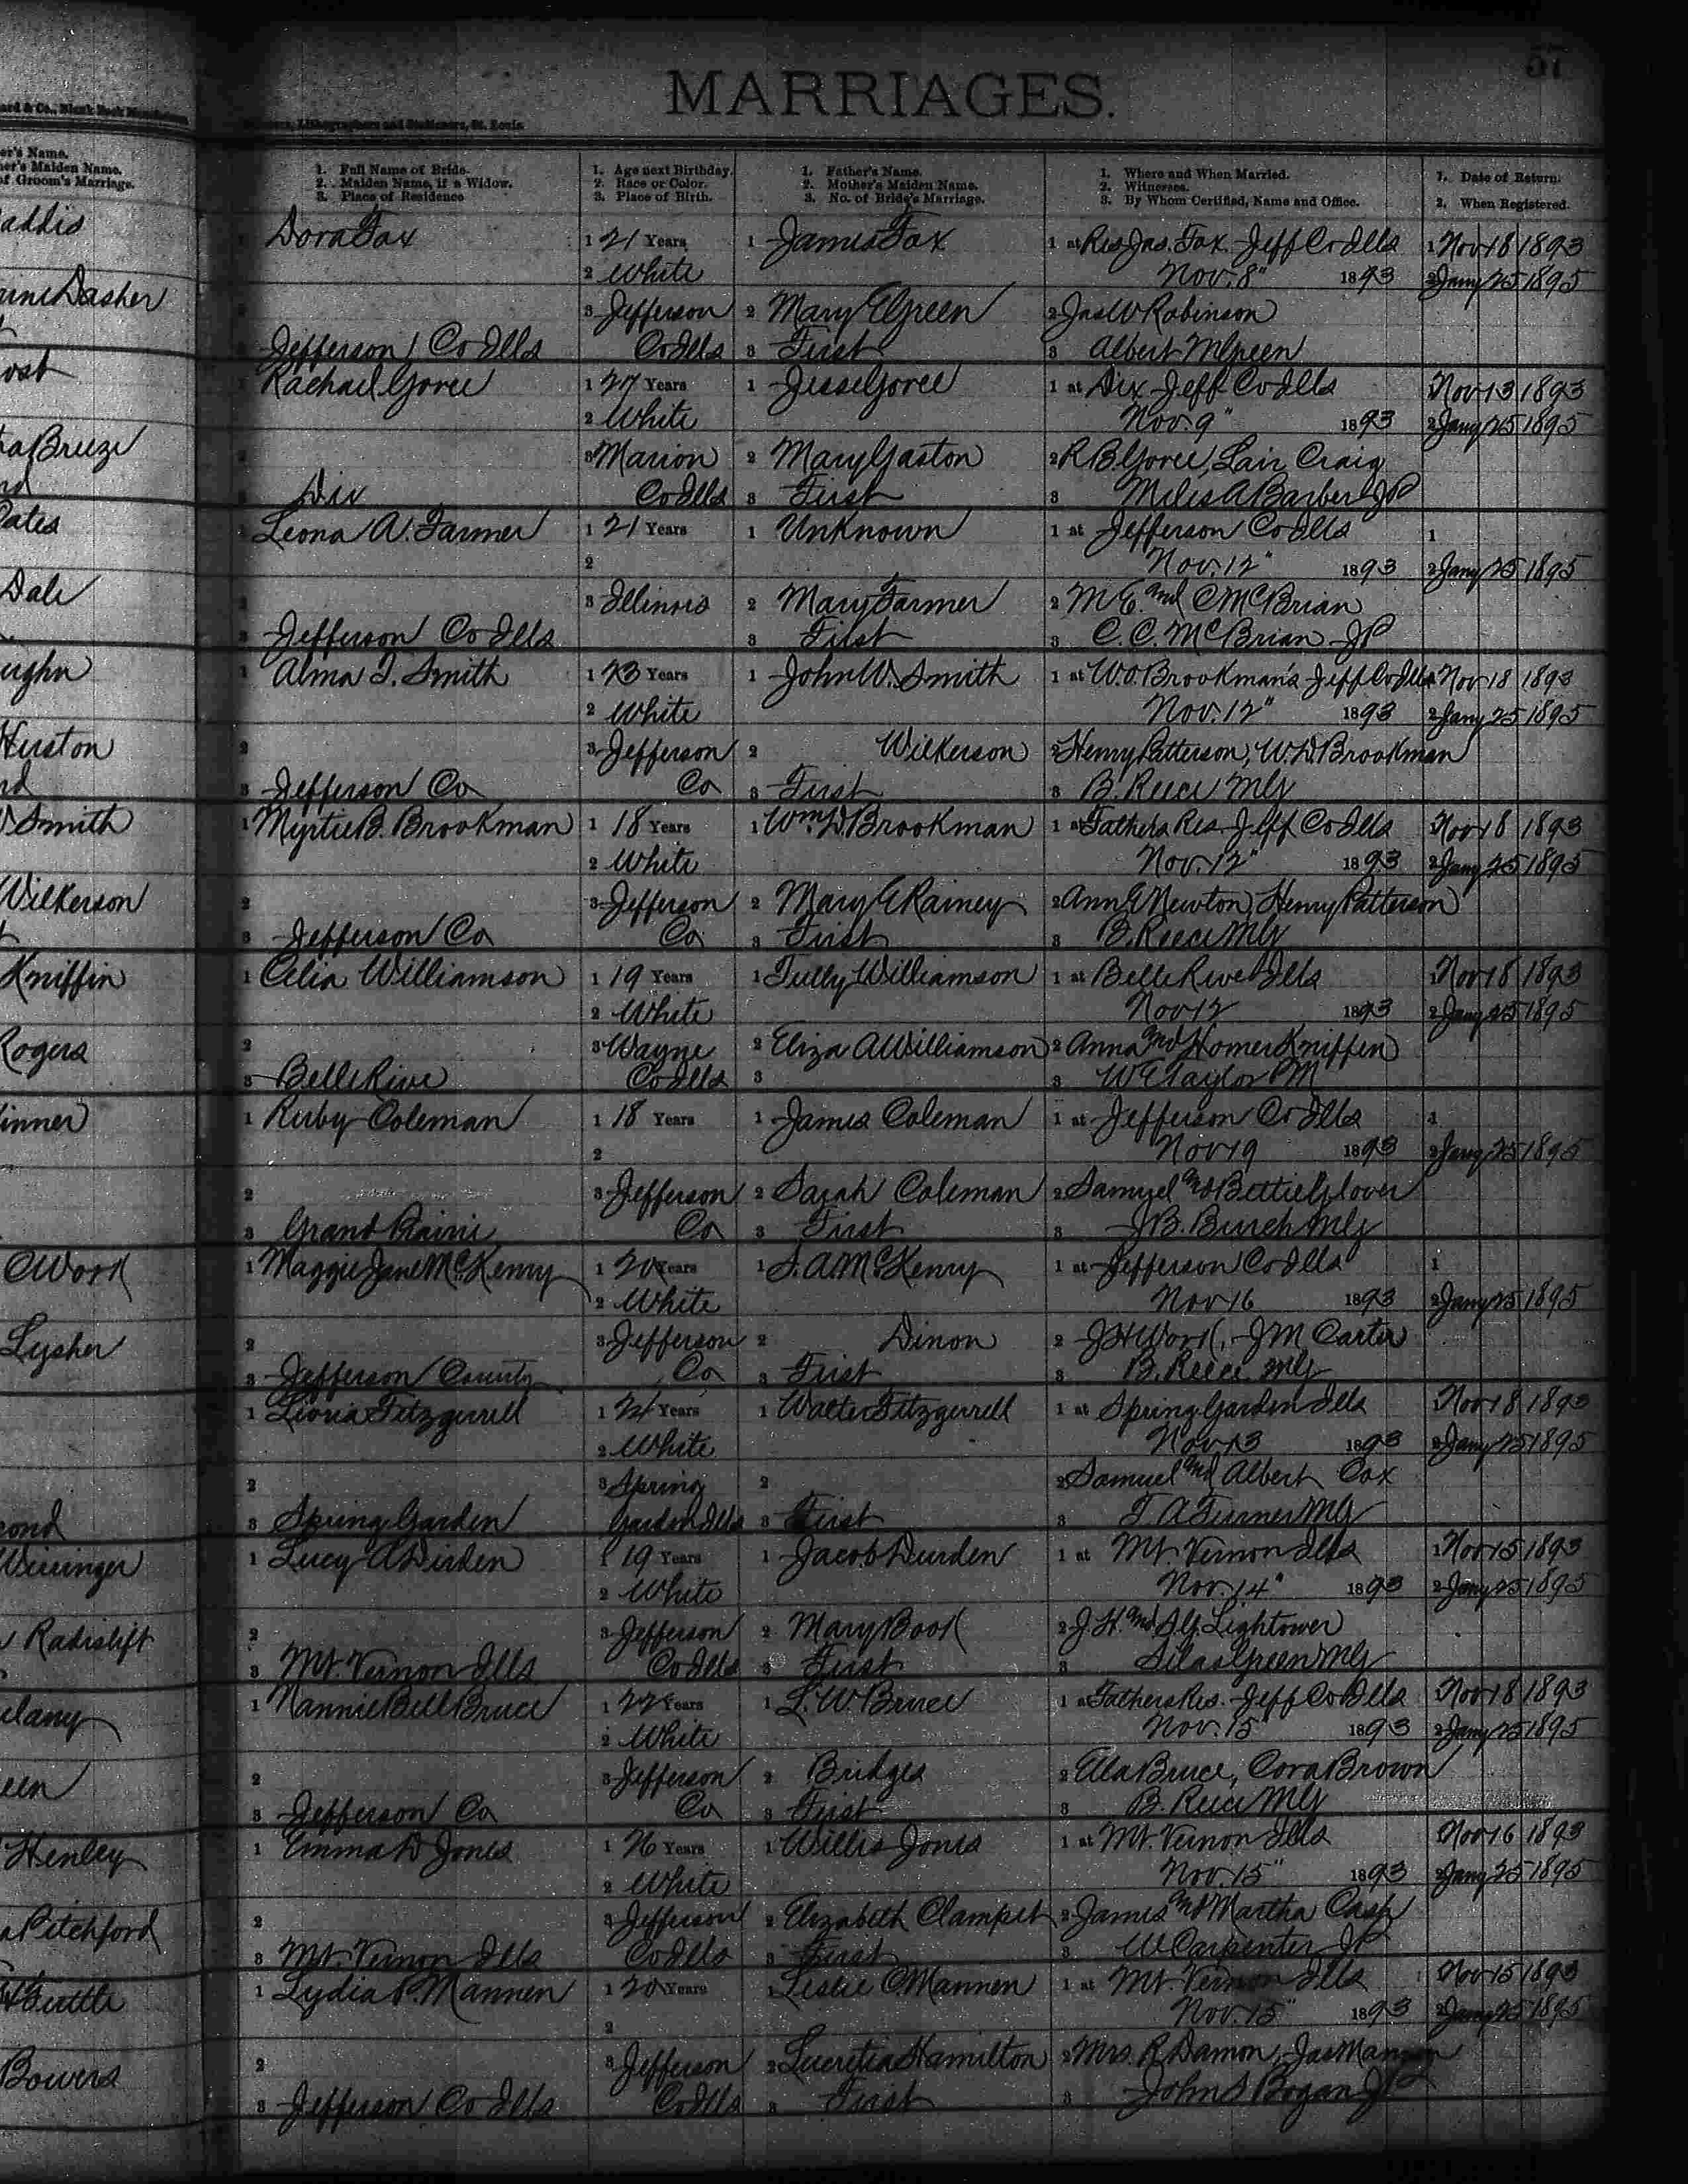 57
MARRIAGES.
ard & Co., Blank Book
Lithographers and Stationers, St. Louis.
er's Name.
her's Maiden Name.
of Groom's Marriage.
1. Full Name of Bride.
2. Maiden Name, if a Widow.
3. Place of Residence
1. Age next Birthday.
2. Race or Color.
3. Place of Birth.
1. Father's Name.
2. Mother's Maiden Name.
3. No. of Bride's Marriage.
1. Where and When Married.
2. Witnesses.
3. By Whom Certified, Name and Office.
1. Date of Return.
2. When Registered.
addis
Dora Fox 1 21 Years 1 James Fox 1 at Res Jas. Fox Jeff Co Ills 1 Nov 18 1893
2 White Nov. 8" 1893 2 Jany 25 1895
Dasher 3 Jefferson 2 Mary E Green 2 Jas W Robinson
Jefferson Co Ills Co Ills 3 First 3 Albert M Green
ost Rachael Goree 1 27 Years 1 Jesse Goree 1 at Dix Jeff Co Ills Nov 13 1893
2 White Nov. 9" 1893 2 Jany 25 1895
a Breeze 3 Marion 2 Mary Gaston 2 R B Goree, Lair Craig
Dix Co Ills 3 First 3 Miles A Barber JP
Pates Leona A. Farmer 1 21 Years 1 Unknown 1 at Jefferson Co Ills 1
2 Nov. 12" 1893 2 Jany 25 1895
Dale 3 Illinois 2 Mary Farmer 2 M E. and C McBrian
3 Jefferson Co Ills 3 First 3 C. C. McBrian JP
ughn 1 Alma I. Smith 1 23 Years 1 John W. Smith 1 at W. D. Brookman's Jeff Co Ills Nov 18 1893
2 White Nov. 12" 1893 2 Jany 25 1895
Huston 2 3 Jefferson 2 Wilkerson 2 Henry Patterson, W. D. Brookman
3 Jefferson Co Co 3 First 3 B. Reece MG
Smith 1 Myrtie B. Brookman 1 18 Years 1 Wm D Brookman 1 at Fathers Res Jeff Co Ills Nov 18 1893
2 White Nov. 12" 1893 2 Jany 25 1895
Wilkerson 2 3 Jefferson 2 Mary E Rainey 2 Ann E Newton, Henry Patterson
3 Jefferson Co Co 3 First 3 B. Reece MG
Kniffin 1 Celia Williamson 1 19 Years 1 Tully Williamson 1 at Belle Rive Ills Nov 18 1893
2 White Nov 12 1893 2 Jany 25 1895
Rogers 2 3 Wayne 2 Eliza A Williamson 2 Anna and Homer Kniffen
3 Belle Rive Co Ills 3 3 W E Taylor PM
inner 1 Ruby Coleman 1 18 Years 1 James Coleman 1 at Jefferson Co Ills 1
2 Nov 19 1893 2 Jany 25 1895
2 3 Jefferson 2 Sarah Coleman 2 Samuel and Bettie Glover
3 Grand Prairie Co 3 First 3 J B. Burch MG
Work 1 Maggie Jane McKenry 1 20 Years 1 S. A. McKenry 1 at Jefferson Co Ills 1
2 White Nov 16 1893 2 Jany 25 1895
Lysher 2 3 Jefferson 2 Dinon 2 J H Work, J M Carter
3 Jefferson County Co 3 First 3 B. Reece MG
1 Fitzgerrell 1 21 Years 1 Walter Fitzgerrell 1 at Spring Garden Ills Nov 18 1893
2 White Nov 13 1893 2 Jany 25 1895
2 3 Spring 2 2 Samuel and Albert Cox
cond 3 Spring Garden Garden Ills 3 First 3 T A Turner MG
1 Lucy A Dirden 1 19 Years 1 Jacob Durden 1 at Mt. Vernon Ills 1 Nov 15 1893
2 White Nov. 14" 1893 2 Jany 25 1895
Radislift 2 3 Jefferson 2 Mary Book 2 J. H. and Lightower
3 Mt. Vernon Ills Co Ills 3 First 3 Silas Green MG
elany 1 Nannie Bell Bruce 1 22 Years 1 L. W. Bruce 1 at Fathers Res. Jeff Co Ills Nov 18 1893
2 White Nov. 15" 1893 2 Jany 25 1895
een 2 3 Jefferson 2 Bridges 2 Ella Bruce, Cora Brown
3 Jefferson Co Co 3 First 3 B. Reece MG
Henley 1 Emma D Jones 1 26 Years 1 Willis Jones 1 at Mt. Vernon Ills Nov 16 1893
2 White Nov. 15" 1893 2 Jany 25 1895
a Pitchford 2 3 Jefferson 2 Elizabeth Clampet 2 James and Martha Cash
3 Mt. Vernon Ills Co Ills 3 First 3 W Carpenter JP
Tuttle 1 Lydia P. Mannen 1 20 Years 1 Leslie C. Mannen 1 at Mt. Vernon Ills Nov 15 1893
2 Nov. 15" 1893 2 Jany 25 1895
Bowers 2 3 Jefferson 2 Lucretia Hamilton 2 Mrs. R Damon, Jas Mannen
3 Jefferson Co Ills Co Ills 3 First 3 John S Bogan JP